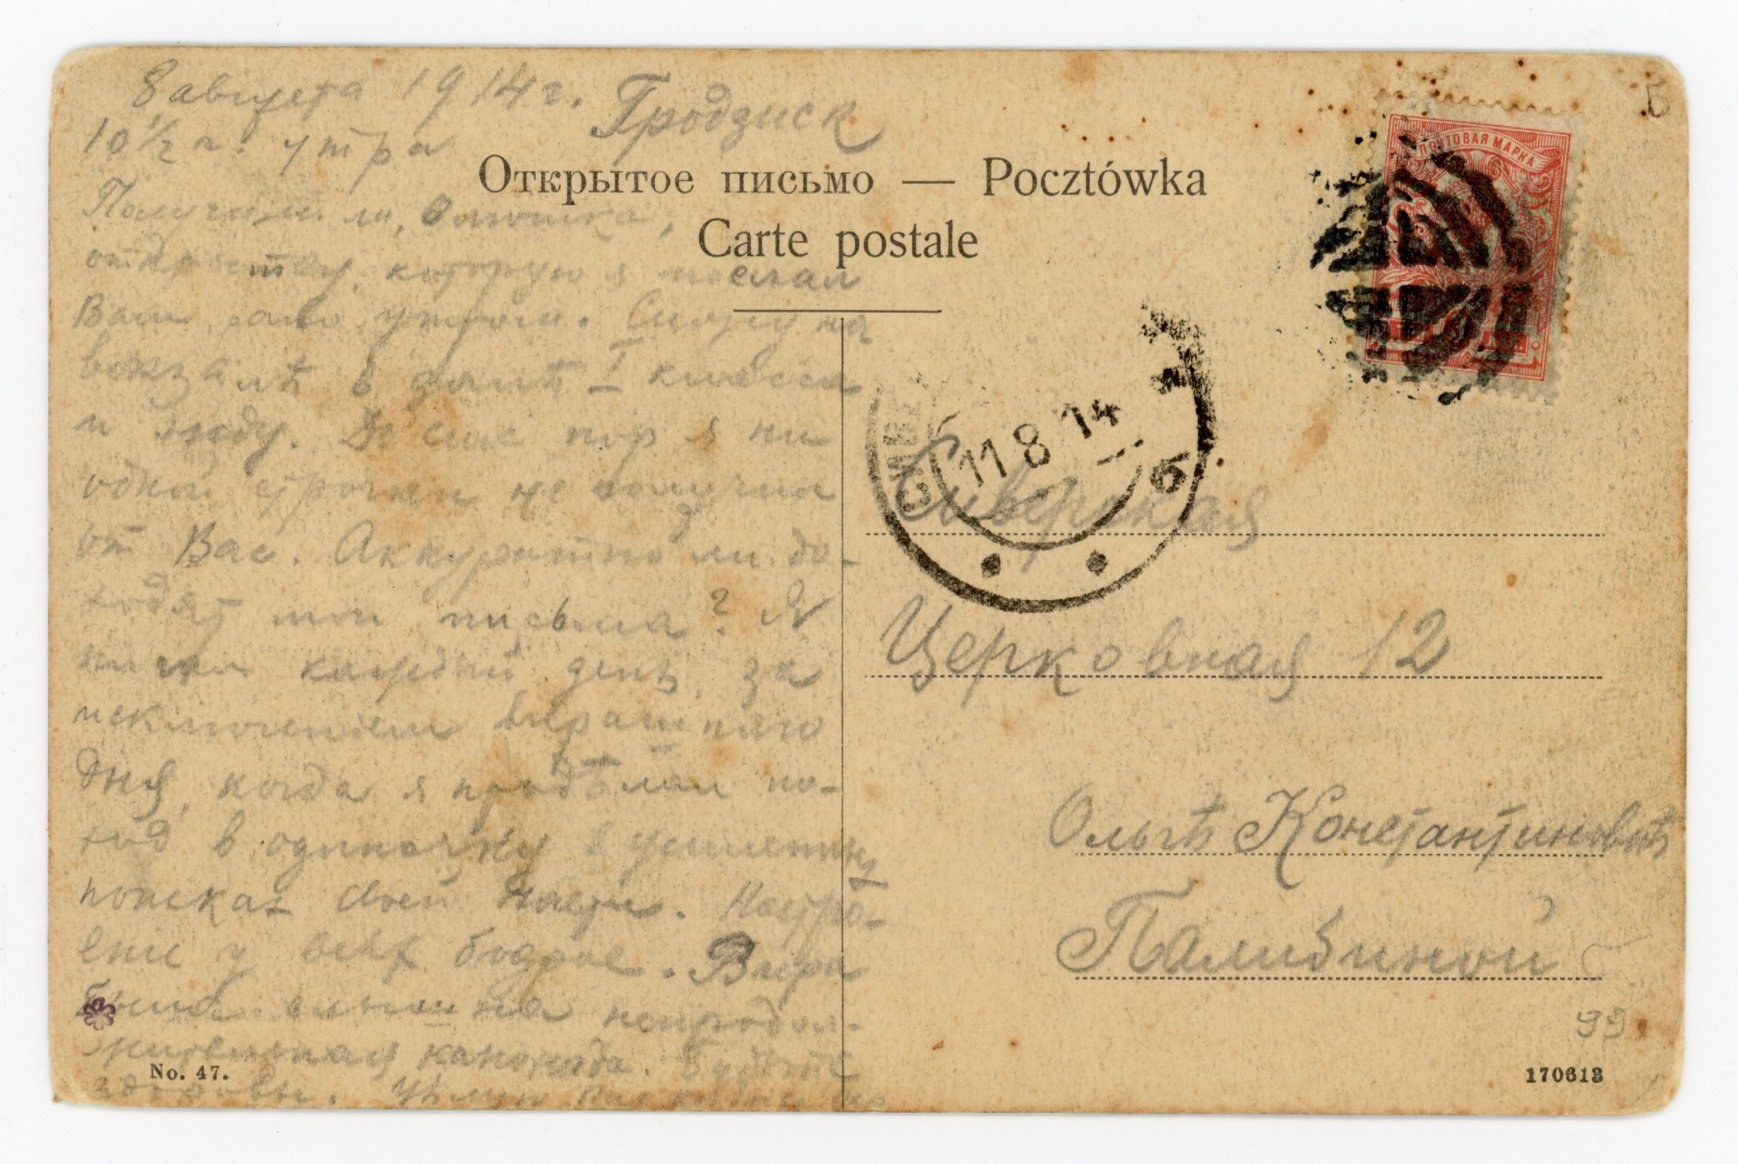 8 августа 1914 г. Гродзиск
10 1/2 ч. утра
Открытое письмо — Pocztówka
Carte postale
Получили ли, Олюшка,
открытку, которую я послал
Вам рано утром. Сижу на
вокзалѣ в залѣ I класса
и жду. До сих пор я ни
одной строчки не получил
от Вас. Аккуратно ли до-
ходят мои письма? Я
писал каждый день, за
исключением вчерашняго
дня, когда я продѣлал по-
ход в одиночку в усиленных
поисках своей части. Настро-
ение у всѣх бодрое. Вчера
была слышна непродол-
жительная канонада. Будьте
здоровы. Цѣлую Вас
No. 47.
ПОЧТОВАЯ МАРКА
11 8 14
б
Сиверская
Церковная 12
Ольгѣ Константиновнѣ
Палибиной
99
170613